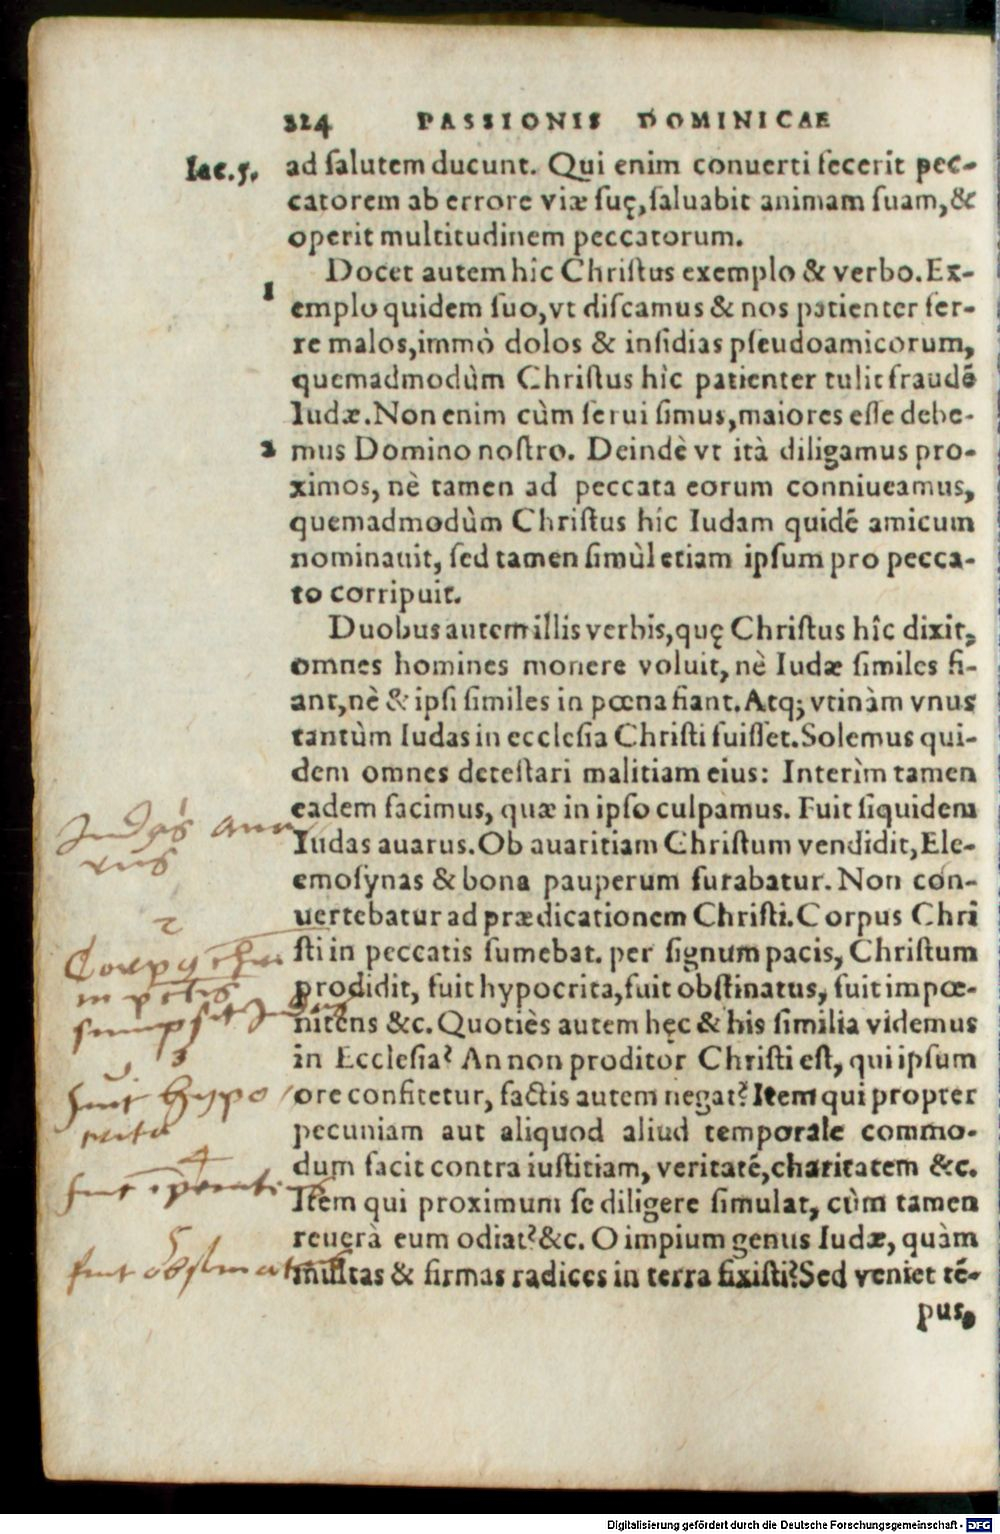 224 PASSIONIS DOMINICAE
Iac.5. ad ſalutem ducunt. Qui enim conuerti fecerit pec-
catorem ab errore viæ ſuę, ſaluabit animam ſuam, &
operit multitudinem peccatorum.
Docet autem hic Chriſtus exemplo & verbo. Ex-
1 emplo quidem ſuo, vt diſcamus & nos patienter fer-
re malos, immò dolos & inſidias pſeudoamicorum,
quemadmodùm Chriſtus hîc patienter tulit fraudē
Iudæ. Non enim cùm ſerui ſimus, maiores eſſe debe-
2 mus Domino noſtro. Deindè vt ità diligamus pro-
ximos, nè tamen ad peccata eorum conniueamus,
quemadmodùm Chriſtus hîc Iudam quidē amicum
nominauit, ſed tamen ſimùl etiam ipſum pro pecca-
to corripuit.
Duobus autem illis verbis, quę Chriſtus hîc dixit,
omnes homines monere voluit, nè Iudæ ſimiles fi-
ant, nè & ipſi ſimiles in pœna fiant. Atq; vtinàm vnus
tantùm Iudas in eccleſia Chriſti fuiſſet. Solemus qui-
dem omnes deteſtari malitiam eius: Interìm tamen
eadem facimus, quæ in ipſo culpamus. Fuit ſiquidem
Iudas aua
rus
Iudas auarus. Ob auaritiam Chriſtum vendidit, Ele-
emoſynas & bona pauperum furabatur. Non con-
uertebatur ad prædicationem Chriſti. Corpus Chri
2
Corpus chri
in pctis
sumpsit Iudas
ſti in peccatis ſumebat. per ſignum pacis, Chriſtum
prodidit, fuit hypocrita, fuit obſtinatus, fuit impœ-
nitens &c. Quotiès autem hęc & his ſimilia videmus
3
fuit hypo
crita
in Eccleſia? An non proditor Chriſti eſt, qui ipſum
ore confitetur, factis autem negat? Item qui propter
pecuniam aut aliquod aliud temporale commo-
4
fuit
dum facit contra iuſtitiam, veritatē, charitatem &c.
Item qui proximum ſe diligere ſimulat, cùm tamen
5
fuit obstinatus
reuerà eum odiat? &c. O impium genus Iudæ, quàm
multas & firmas radices in terra fixiſti? Sed veniet tē-
pus,
Digitalisierung gefördert durch die Deutsche Forschungsgemeinschaft - DFG